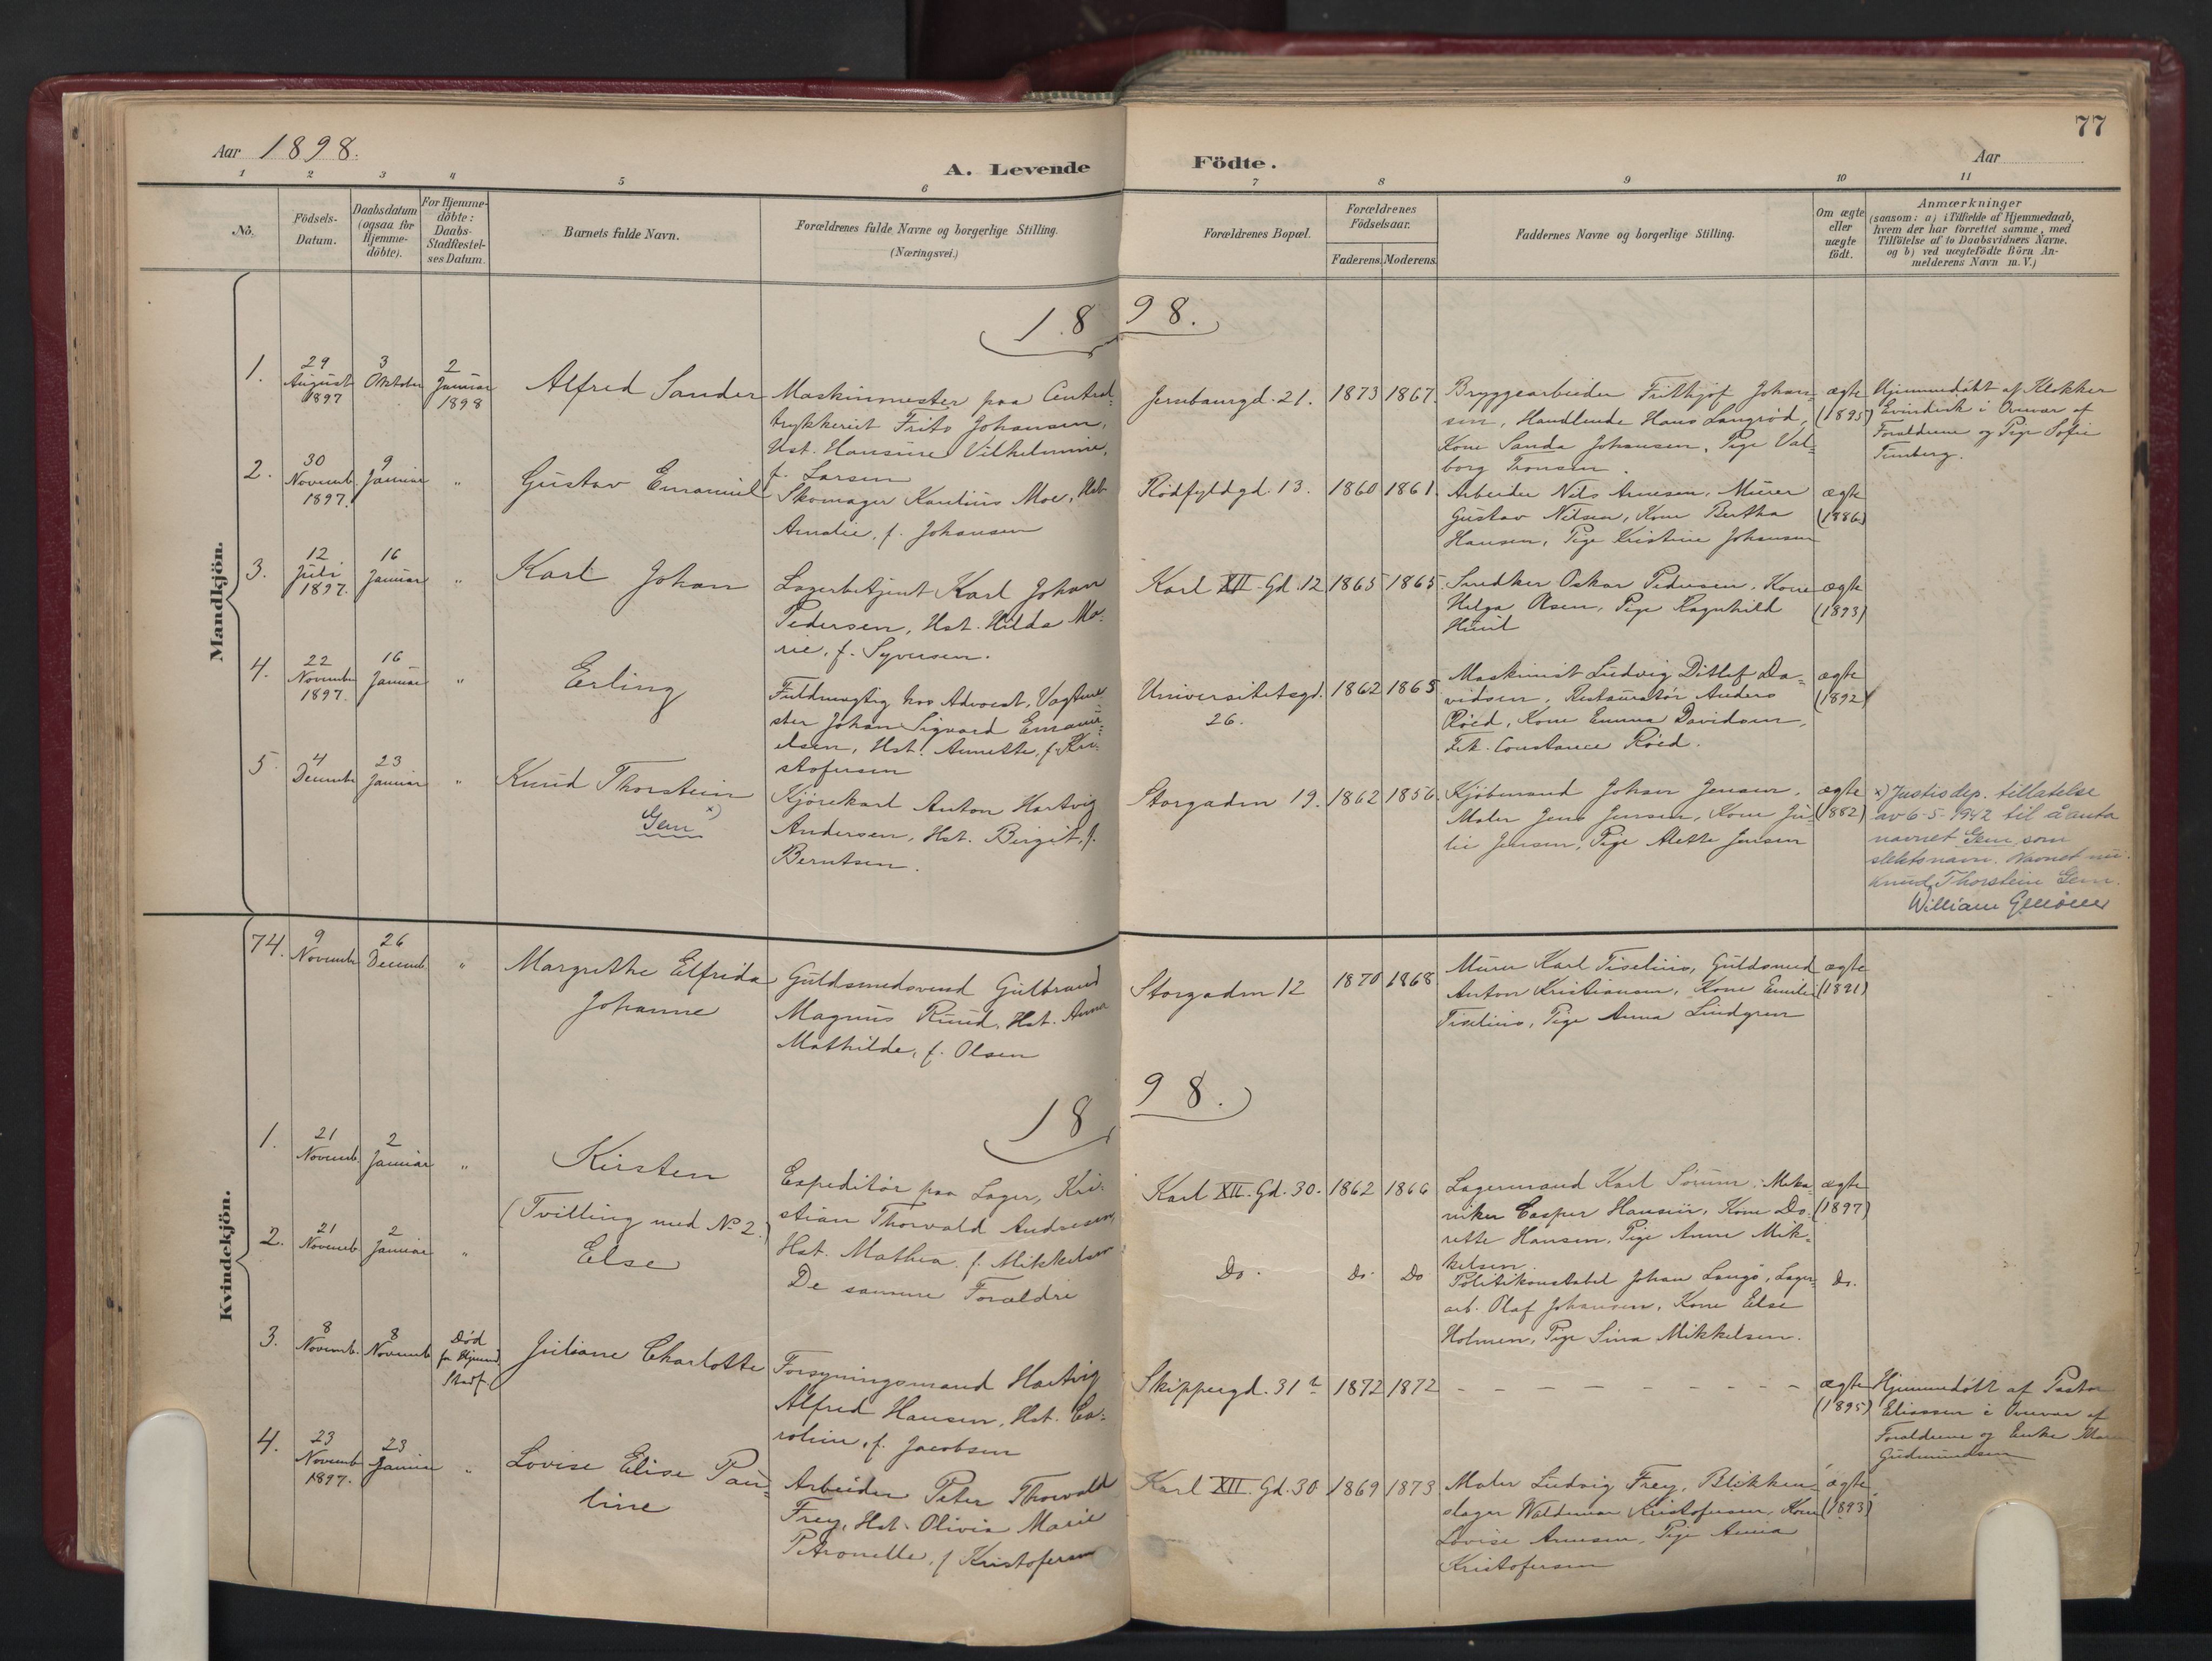 77
Aar 1898.
A. Levende Födte.
Aar
1 2 3 4 5 6 7 8 9 10 11
No.
Födsels-
Datum.
Daabsdatum
(ogsaa for
Hjemme-
döbte).
For Hjemme-
döbte:
Daabs-
Stadfæstel-
ses Datum.
Barnets fulde Navn.
Forældrenes fulde Navne og borgerlige Stilling.
(Næringsvei.)
Forældrenes Bopæl.
Forældrenes
Födselsaar.
Faderens. Moderens.
Faddernes Navne og borgerlige Stilling.
Om ægte
eller
uægte
födt.
Anmærkninger
(saasom: a) i Tilfælde af Hjemmedaab,
hvem der har forrettet samme, med
Tilföielse af to Daabsvidners Navne.
og b) ved uægtefödte Börn An-
melderens Navn m. V.)
1898.
Mandkjön.
1.
29
August
1897
3
Oktober
2
Januar
1898
Alfred Sander
Maskinmester paa Central-
trykkeriet Frits Johansen,
Hst. Hansine Vilhelmine,
f. Larsen
Jernbanegd. 21.
1873 1867.
Bryggearbeider Frithjof Johan-
sen, Handlende Hans Langrød,
Kone Sanda Johansen, Pige Val-
borg Tronsen.
ægte
(1895)
Hjemmedöbt af Klokker
Evindvik i Overvær af
Forældrene og Pige Sofie
Timberg.
2.
30
Novemb.
1897.
9
Januar
"
Gustav Emanuel
Skomager Karelius Moe, Hst.
Amalie, f. Johansen
Rödfyldgd. 13.
1860 1861.
Arbeider Nils Arnesen, Murer
Gustav Nilsen, Kone Bertha
Hansen, Pige Kristine Johansen
ægte
(1886)
3.
12
Juli
1897.
16
Januar
"
Karl Johan
Lagerbetjent Karl Johan
Pedersen, Hst. Hilda Ma-
rie, f. Syversen.
Karl XII. Gd. 12
1865 1865.
Snedker Oskar Pedersen, Kone
Helga Olsen, Pige Ragnhild
ægte
(1893)
4.
22
Novembr
1897.
16
Januar
"
Erling
Fuldmægtig hos Advocat, Vagtme-
ster Johan Sigvard Emanu-
elsen, Hst. Annette, f. Kri-
stofersen
Universitetsgd.
26.
1862 1865
Maskinist Ludvig Ditlef Da-
vidsen, Restauratör Anders
Röed, Kone Emma Davidsen,
Frk. Constance Röed.
ægte
(1892)
5
4
Decembr
23
Januar
"
Knud Thorstein
Gem x)
Kjörekarl Anton Hartvig
Andersen, Hst. Birgit, f.
Berntsen.
Storgaden 19.
1862 1856.
Kjöbmand Johan Jensen,
Maler Jens Jensen, Kone Ju-
lie Jensen, Pige Alette Jensen
ægte
(1882)
x) Justisdep. tillatelse
av 6-5-1942 til å anta
navnet Gem som
slektsnavn. Navnet nu:
Knud Thorstein Gem.
William
Kvindekjön.
74.
9
Novembr
26
Decemb.
"
Margrethe Elfrida
Johanne
Guldsmedsvend Gulbrand
Magnus Ruud, Hst. Anna
Mathilde, f. Olsen
Storgaden 12
1870 1868
Murer Karl Tiselius, Guldsmed
Anton Kristiansen, Kone Emilie
Tiselius, Pige Anna Lindgren
ægte
(1891)
1898.
1.
21
Novemb.
2
Januar
"
Kirsten
(Tvilling med No 2.)
Expeditör paa Lager, Kri-
stian Thorvald Andresen,
Hst. Mathea, f. Mikkelsen
Karl XII. Gd. 30.
1862 1866
Lagermand Karl Sörum, Meka-
niker Casper Hansen, Kone Do-
rette Hansen, Pige Anne Mik-
kelsen.
ægte
(1897)
2.
21
Novemb
2
Januar
"
Else
De samme Forældre
Do.
do. Do
Politikonstabel Johan Langö, Lager-
arb. Olaf Johansen, Kone Else
Holmen, Pige Sina Mikkelsen.
do.
3.
8
Novemb.
8
Novemb
Död
för Hjemmed.
Stadf.
Juliane Charlotte
Forsyningsmand Hartvig
Alfred Hansen, Hst. Ca-
roline, f. Jacobsen
Skippergd. 31 b
1872 1872
- - - - - - - - -
ægte
(1895)
Hjemmedöbt af Pastor
Eliassen i Overvær af
Forældrene og Enke Maren
Gudmundsen
4.
23
Novemb
1897.
23
Januar
"
Lovise Elise Pau-
line
Arbeider Peter Thorvald
Frey, Hst. Olivia Marie
Petronelle, f. Kristofersen
Karl XII. Gd. 30
1869 1873
Maler Ludvig Frey, Blikken-
slager Waldemar Kristofersen, Kone
Lovise Arnesen, Pige Anna
Kristofersen
ægte
(1893)